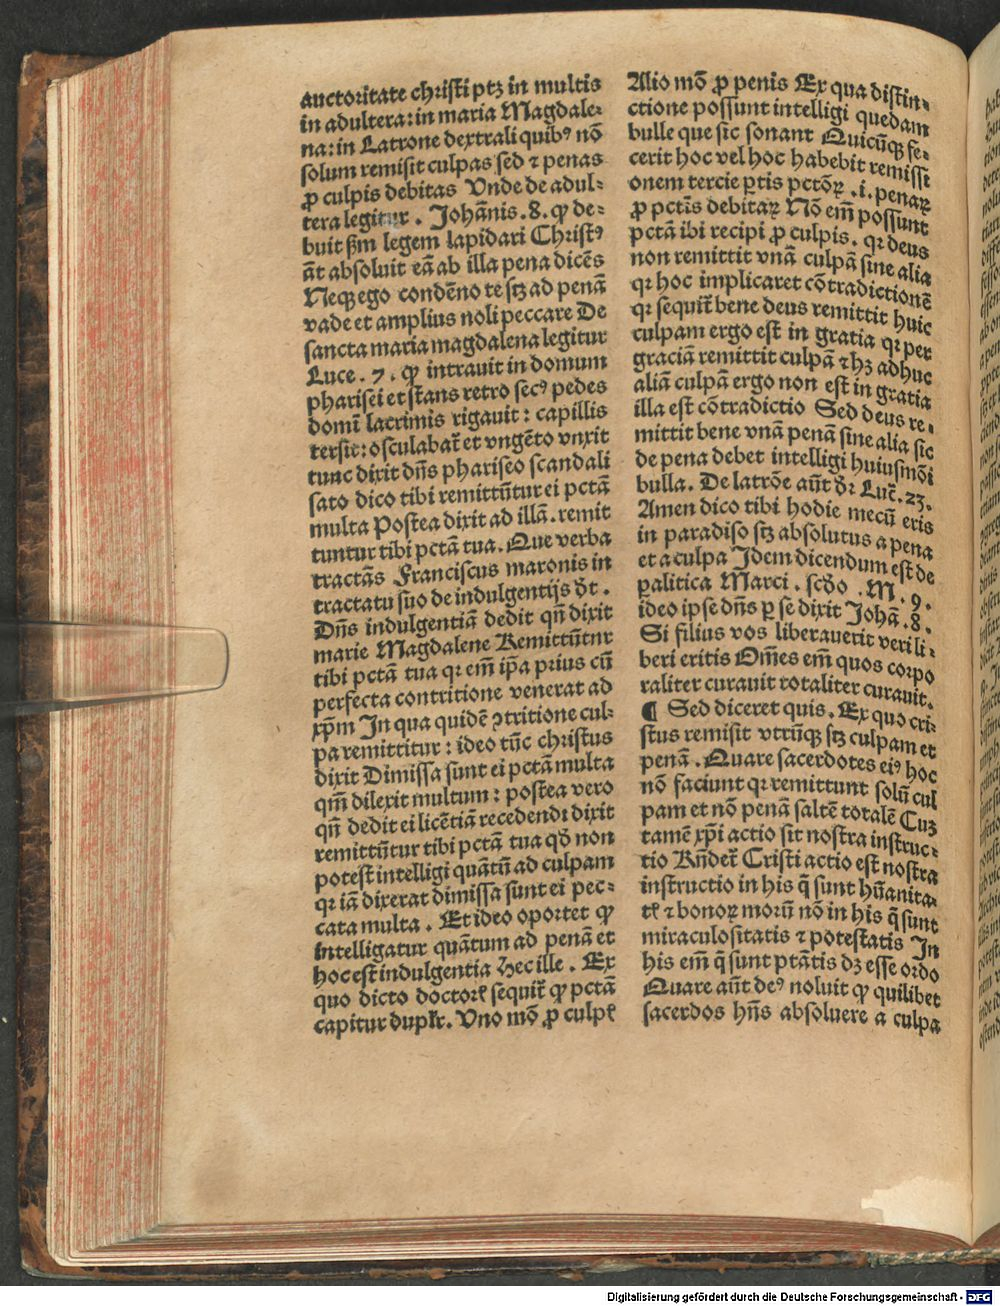 auctoritate christi ptꝫ in multis
in adultera: in maria Magdale⸗
na: in Latrone dextrali quibꝰ nō
solum remisit culpas sed ⁊ penas
ꝓ culpis debitas Vnde de adul⸗
tera legitur . Johānis . 8 . ꝙ de⸗
buit ẜm legem lapidari Christꝰ
āt absoluit eā ab illa pena dicēs
Neqꝫ ego condēno te sꝫ ad penā
vade et amplius noli peccare De
sancta maria magdalena legitur
Luce . 7 . ꝙ intrauit in domum
pharisei et stans retro secꝰ pedes
domī lacrimis rigauit : capillis
tersit : osculabat̄ et vngēto vnxit
tunc dixit dn̄s phariseo scandali
sato dico tibi remittūtur ei pctā
multa Postea dixit ad illā . remit
tuntur tibi pctā tua . Que verba
tractās Franciscus maronis in
tractatu suo de indulgentijs dt̄ .
Dn̄s indulgentiā dedit qn̄ dixit
marie Magdalene Remittūtur
tibi pctā tua qꝛ em̄ ip̄a prius cū
perfecta contritione venerat ad
xp̄m In qua quidē ꝯtritione cul⸗
pa remittitur : ideo tūc christus
dixit Dimissa sunt ei pctā multa
qm̄ dilexit multum : postea vero
qn̄ dedit ei licētiā recedendi dixit
remittūtur tibi pctā tua qd̄ non
potest intelligi quātū ad culpam
qꝛ iā dixerat dimissa sunt ei pec⸗
cata multa . Et ideo oportet ꝙ
intelligatur quātum ad penā et
hoc est indulgentia Hec ille . Ex
quo dicto doctorꝭ sequit̄ ꝙ pctā
capitur duplr̄ . Vno mō ꝓ culpꝭ
Alio mō ꝓ penis Ex qua distin⸗
ctione possunt intelligi quedam
bulle que sic sonant Quicūqꝫ fe⸗
cerit hoc vel hoc habebit remissi
onem tercie ꝑtis pctōꝝ . i . penaꝝ
ꝓ pctīs debitaꝝ Nō em̄ possunt
pctā ibi recipi ꝓ culpis . qꝛ deus
non remittit vnā culpā sine alia
qꝛ hoc implicaret cōtradictionē
qꝛ sequit̄ bene deus remittit huic
culpam ergo est in gratia qꝛ per
graciā remittit culpā ⁊ hꝫ adhuc
aliā culpā ergo non est in gratia
illa est cōtradictio Sed deus re⸗
mittit bene vnā penā sine alia sic
de pena debet intelligi huiusmōi
bulla . De latrōe aūt dr̄ Luc̄ . 23 .
Amen dico tibi hodie mecū eris
in paradiso sꝫ absolutus a pena
et a culpa Idem dicendum est de
ꝑalitica Marci . scd̄o . M . 9 .
ideo ipse dn̄s ꝑ se dixit Johā . 8 .
Si filius vos liberauerit veri li⸗
beri eritis Om̄es em̄ quos corpo
raliter curauit totaliter curauit .
¶ Sed diceret quis . Ex quo cri⸗
stus remisit vtrūqꝫ sꝫ culpam et
penā . Quare sacerdotes eiꝰ hoc
nō faciunt qꝛ remittunt solū cul
pam et nō penā saltē totalē Cuꝫ
tamē xp̄i actio sit nostra instruc⸗
tio Rn̄det̄ Cristi actio est nostra
instructio in his q̄ sunt hūanita⸗
tꝭ ⁊ bonoꝝ morū nō in his q̄ sunt
miraculositatis ⁊ potestatis In
his em̄ q̄ sunt ptātis dꝫ esse ordo
Quare aūt deꝰ noluit ꝙ quilibet
sacerdos hn̄s absoluere a culpa
Digitalisierung gefördert durch die Deutsche Forschungsgemeinschaft - DFG